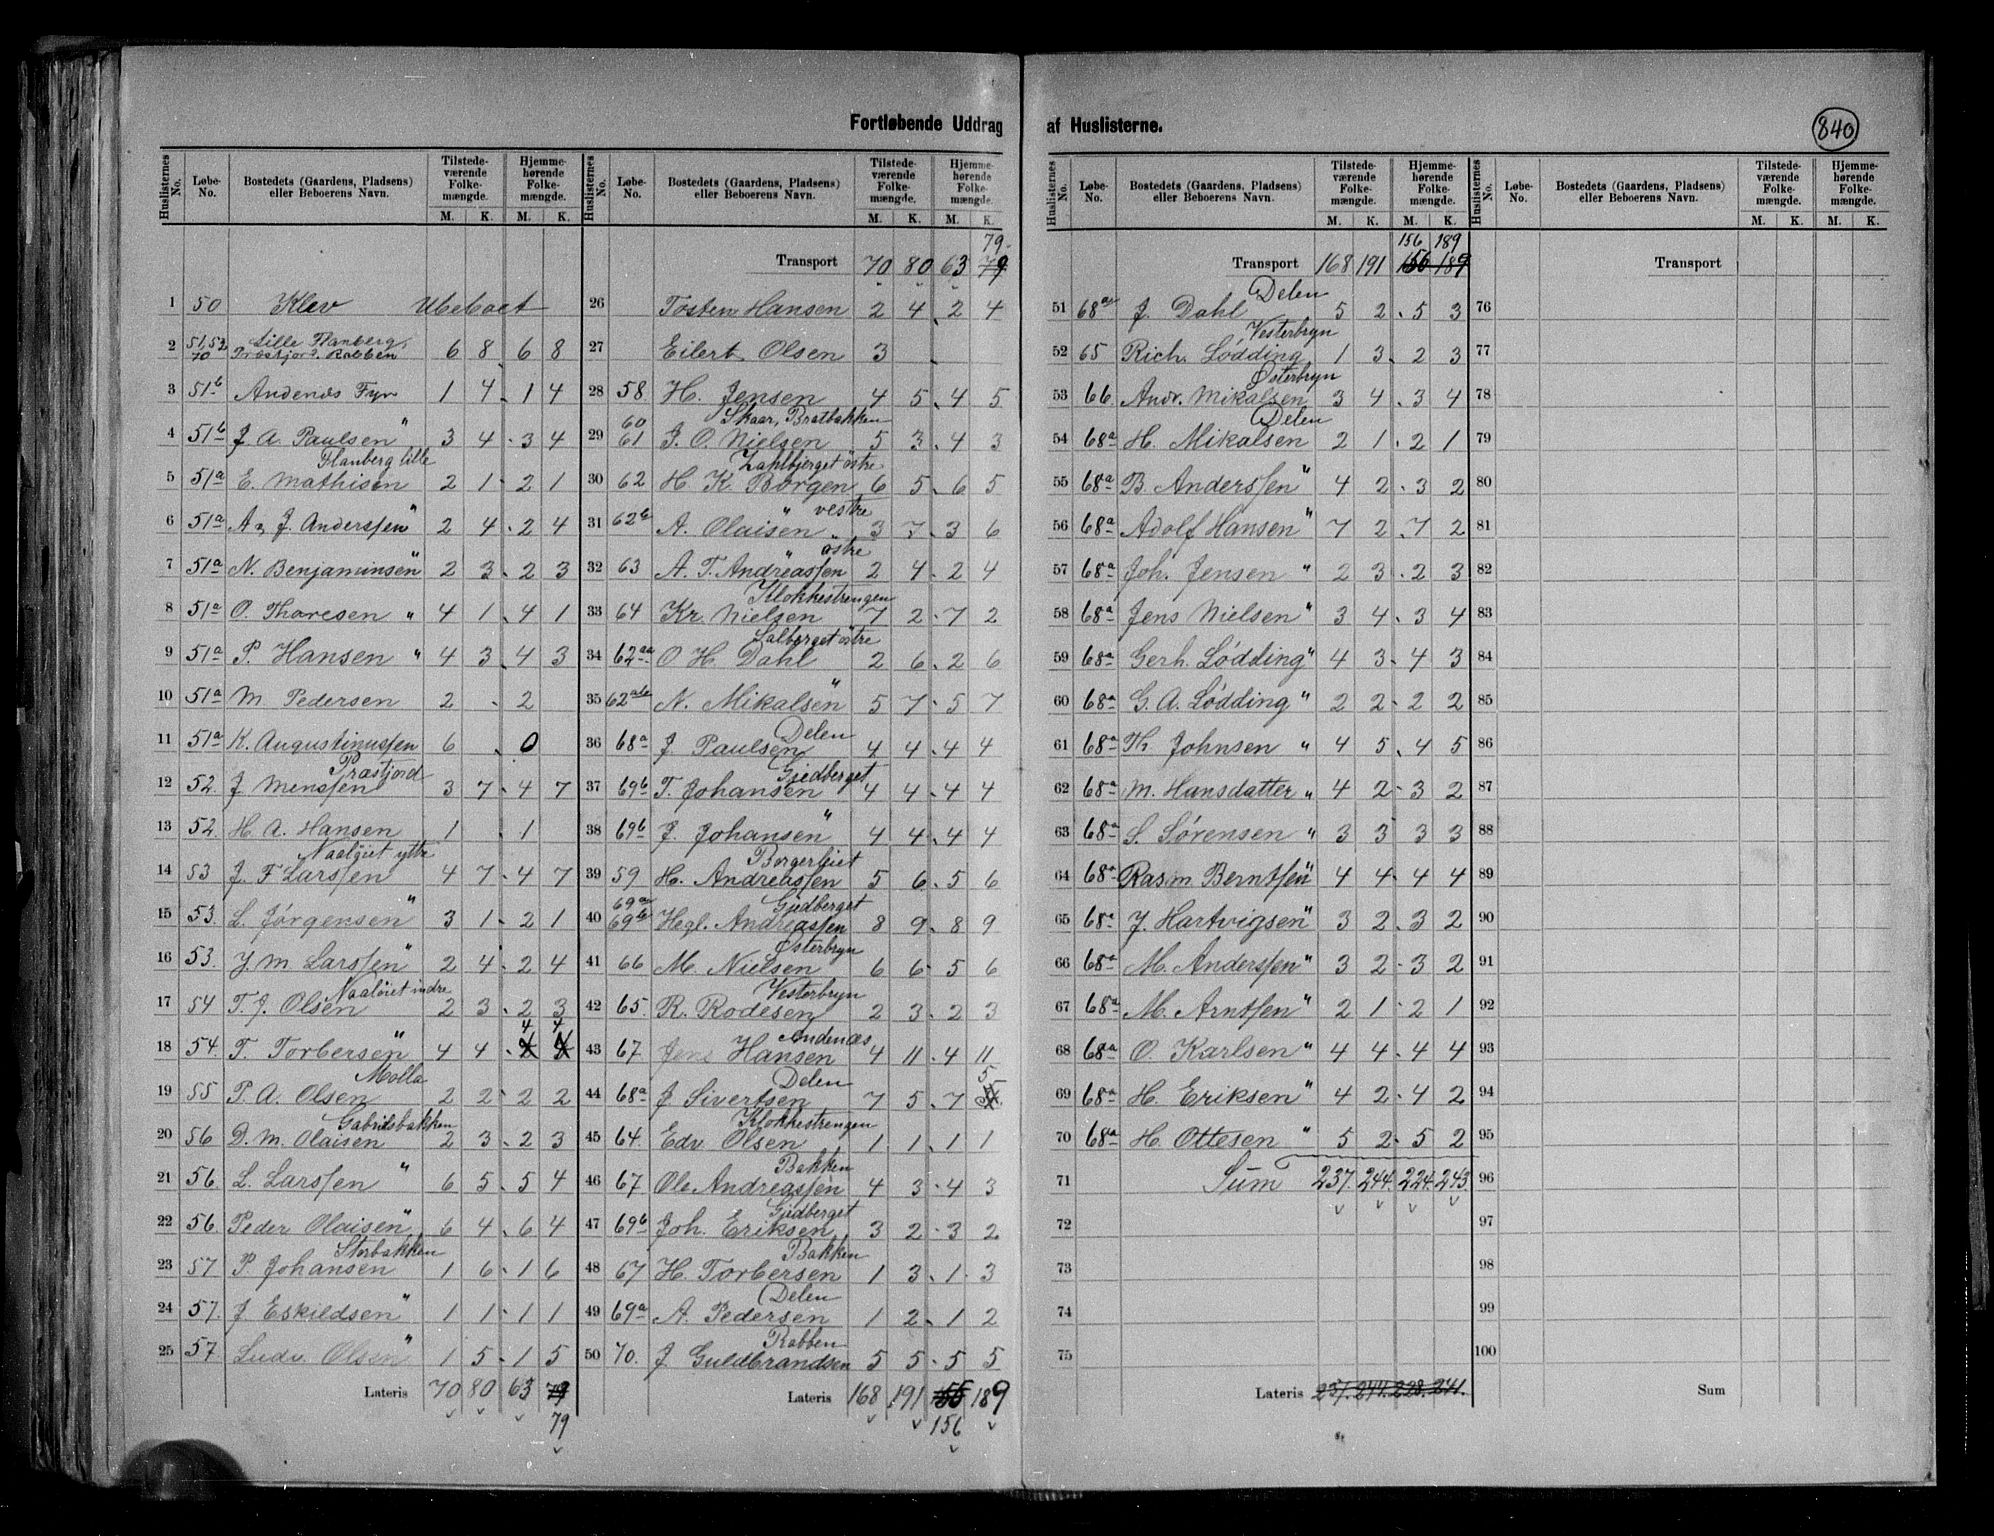 840
Fortløbende Uddrag af Huslisterne.
Huslisternes No. Løbe-No. Bostedets (Gaardens, Pladsens) eller Beboerens Navn. Tilstedeværende Folkemængde. M. K. Hjemmehørende Folkemængde. M. K.
1 50 Klev Ubeboet
2 51,52 70 Lille Præstfjord. Rabben 6 8 6 8
3 51b Andenæs Fyr 1 4 1 4
4 51b J A Paulsen " 3 4 3 4
5 51a E. Mathisen 2 1 2 1
6 51a A. J. Anderssen " 2 4 2 4
7 51a N. Benjaminsen " 2 3 2 3
8 51a O. Thoresen " 4 1 4 1
9 51a P. Hansen " 4 3 4 3
10 51a M Pedersen 2 2
11 51a K. Augustinussen 6 0
12 52 Præstfjord J Menssen 3 7 4 7
13 52 H. A. Hansen 1 1
14 53 Naaløiet ytre J. F Larssen 4 7 4 7
15 53 L. Jørgensen " 3 1 2 1
16 53 J. M Larssen " 2 4 2 4
17 54 Naaløiet indre T. J. Olsen 2 3 2 3
18 54 T. Torbersen " 4 4 4 4
19 55 Molla P. A. Olsen 2 2 2 2
20 56 Gabrielsbakken D. M. Olaisen 2 3 2 3
21 56 L. Larssen " 6 5 5 4
22 56 Peder Olaisen " 6 4 6 4
23 57 Storbakken P. Johansen 1 6 1 6
24 57 J Eskildsen " 1 1 1 1
25 57 Ludv. Olsen " 1 5 1 5
Lateris 70 80 63 79
79
Huslisternes No. Løbe-No. Bostedets (Gaardens, Pladsens) eller Beboerens Navn. Tilstedeværende Folkemængde. M. K. Hjemmehørende Folkemængde. M. K.
79
Transport 70 80 63 79
26 Tosten Hansen 2 4 2 4
27 Eilert Olsen 3
28 58 H. Jensen 4 5 4 5
29 60 61 Skaar, Bratbakken J. O. Nielsen 5 3 4 3
30 62 Zahlbjerget östre H K Borgen 6 5 6 5
31 62b " vestre A. Olaisen 3 7 3 6
32 63 " östre A. T. Andreassen 2 4 2 4
33 64 Klokkestrengen Kr. Nielsen 7 2 7 2
34 62aa Salberget östre O H. Dahl 2 6 2 6
35 62ab N. Mikalsen " 5 7 5 7
36 68a Delen J Paulsen 4 4 4 4
37 69b Gjedberget T. Johansen 4 4 4 4
38 69b J. Johansen " 4 4 4 4
39 59 H. Andreassen 5 6 5 6
40 69a 69b Gjedberget Hegl. Andreassen 8 9 8 9
41 66 Østerbryn M. Nielsen 6 6 5 6
42 65 Vesterbryn R. Rodesen 2 3 2 3
43 67 Andenæs Jens Hansen 4 11 4 11
44 68a Delen J Sivertsen 7 5 7 5
45 64 Klokkestrengen Edv Olsen 1 1 1 1
46 67 Bakken Ole Andreassen 4 3 4 3
47 69b Gjedberget Joh. Eriksen 3 2 3 2
48 67 Bakken H. Torbersen 1 3 1 3
49 69a Delen A. Pedersen 1 2 1 2
50 70 Rabben J Guldbrandsen 5 5 5 5
Lateris 168 191 189
156
Huslisternes No. Løbe-No. Bostedets (Gaardens, Pladsens) eller Beboerens Navn. Tilstedeværende Folkemængde. M. K. Hjemmehørende Folkemængde. M. K.
156 189
Transport 168 191 156 189
51 68a Delen J. Dahl 5 2 5 3
52 65 Vesterbryn Rich. Lødding 1 3 2 3
53 66 Østerbryn Andr. Mikalsen 3 4 3 4
54 68a Delen H. Mikalsen 2 1 2 1
55 68a B. Anderssen " 4 2 3 2
56 68a Adolf Hansen " 7 2 7 2
57 68a Joh. Jensen " 2 3 2 3
58 68a Jens Nielsen " 3 4 3 4
59 68a Gerh. Lødding " 4 3 4 3
60 68a G. A. Lødding " 2 2 2 2
61 68a Th. Johnsen " 4 5 4 5
62 68a M. Hansdatter " 4 2 3 2
63 68a S. Sørensen " 3 3 3 3
64 68a Rasm Berntsen " 4 4 4 4
65 68a J. Hartvigsen " 3 2 3 2
66 68a M. Anderssen " 3 2 3 2
67 68a M. Arntsen " 2 1 2 1
68 68a O. Karlsen " 4 4 4 4
69 68a H. Eriksen " 4 2 4 2
70 68a H. Ottesen " 5 2 5 2
71 Sum 237. 244. 224. 243.
72
73
74
75
Lateris 237. 244. 228. 241.
Huslisternes No. Løbe-No. Bostedets (Gaardens, Pladsens) eller Beboerens Navn. Tilstedeværende Folkemængde. M. K. Hjemmehørende Folkemængde. M. K.
Transport
76
77
78
79
80
81
82
83
84
85
86
87
88
89
90
91
92
93
94
95
96
97
98
99
100
Sum